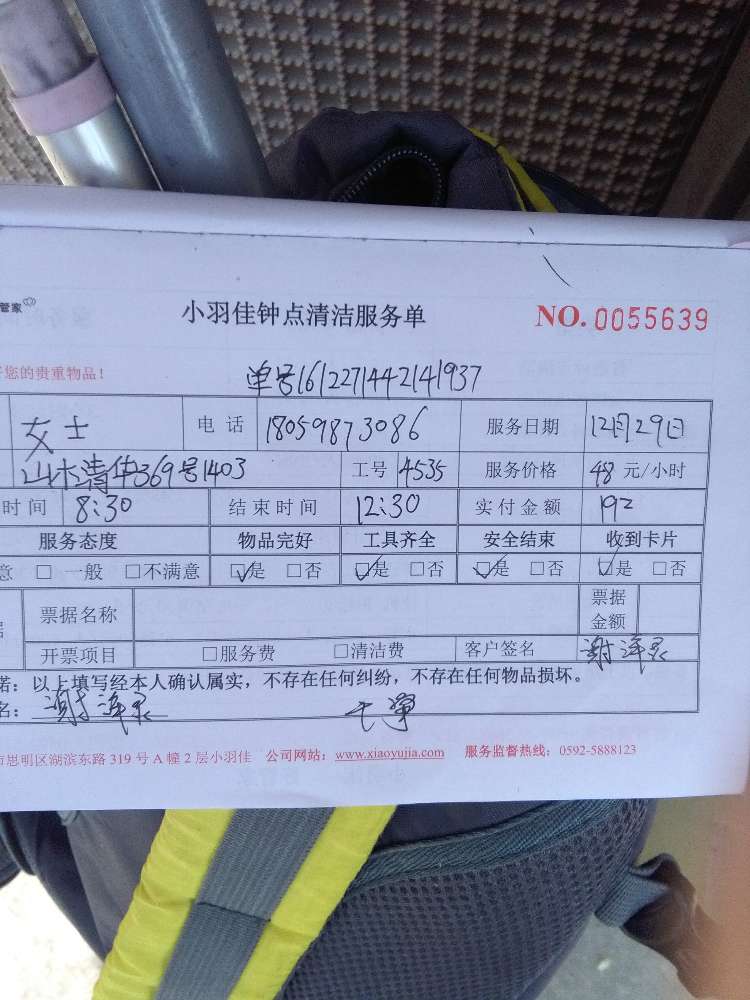 管家
小羽佳钟点清洁服务单 NO. 0055639
您的贵重物品!
单号161227144214193​7
女士 电话 18059873086 服务日期 12月29日
山水清华369号1403 工号 4535 服务价格 48 元/小时
时间 8:30 结束时间 12:30 实付金额 192
服务态度 物品完好 工具齐全 安全结束 收到卡片
意 □ 一般 □不满意 ☑是 □否 ☑是 □否 ☑是 □否 ☑是 □否
票据名称 票据金额
开票项目 □服务费 □清洁费 客户签名 谢
诺:以上填写经本人确认属实,不存在任何纠纷,不存在任何物品损坏。
名:谢 干净
市思明区湖滨东路 319 号 A 幢 2 层小羽佳 公司网站:www.xiaoyujia.com 服务监督热线:0592-5888123